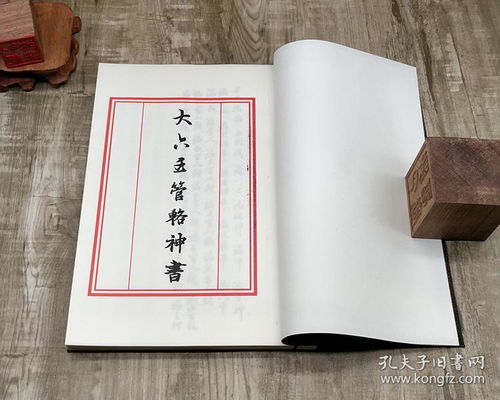 大六壬管輅神書
孔夫子旧书网
www.kongfz.com